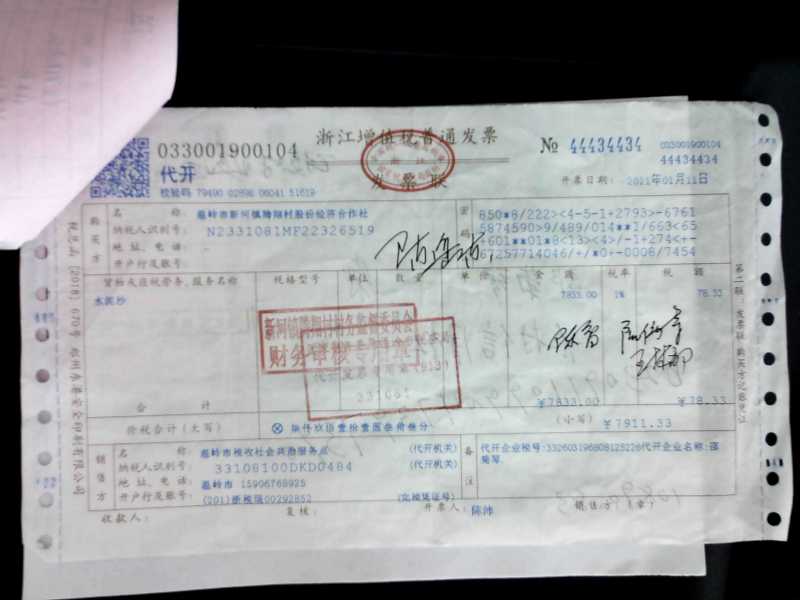 浙江增值税普通发票
发票联
033001900104
代开
校验码 79490 02896 06041 51619
№ 44434434
033001900104
44434434
开票日期: 2021年01月11日
购买方
名 称: 温岭市新河镇腾翔村股份经济合作社
纳税人识别号: N2331081MF22326519
地 址、电 话:
开户行及账号:
密码
850*8/222><4-5-1+2793>-6761
5874590>9/489/014**1/663<65
+601**01*8<13<4>/-1+274<+-
67257714046/+/*0+-0008/7454
货物或应税劳务、服务名称 规格型号 单位 数量 单价 金额 税率 税额
水泥沙 7833.00 1% 78.33
新河镇腾翔村财务监督委员会
财务审核专用章
代开发票专用章
331081
合 计 ¥7833.00 ¥78.33
价税合计(大写) ⊗ 柒仟玖佰壹拾壹圆叁角叁分 (小写) ¥7911.33
销售方
名 称: 温岭市税收社会共治服务点 (代开机关)
纳税人识别号: 33108100DKD0484 (代开机关)
地 址、电 话: 温岭市 15906768925
开户行及账号: (201)浙税现00292852 (完税凭证号)
备注
代开企业税号:332603196808125226代开企业名称:邵
菊琴
收款人: 复核: 开票人: 陈沛 销售方:(章)
第二联:发票联 购买方记账凭证